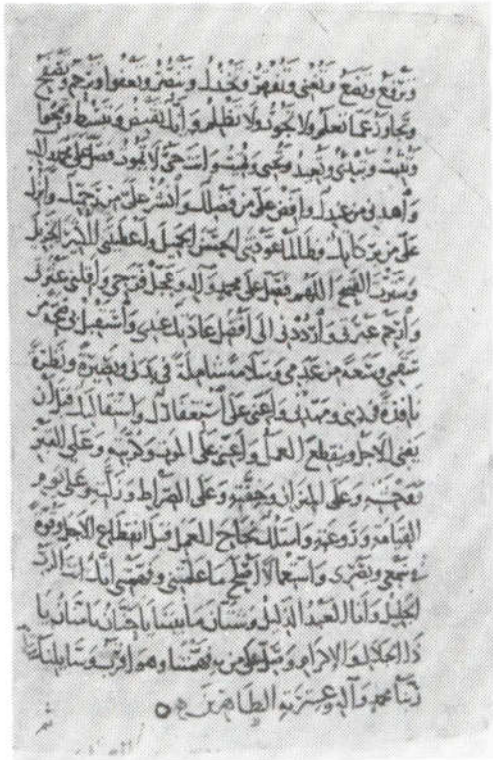 وترفع وتضع وتغني وتفقر وتخذل وتنصر وتعفوا وترحم وتصفح
وتجاوز عما تعلم ولا تجور ولا تظلم وأنك تقبض وتبسط وتمحوا
وتثبت وتبدئ وتعيد وتحيي وتميت وأنت حي لا تموت فصل على محمد وآله
واهدني من عندك وأفض علي من فضلك وانشر علي من رحمتك وأنزل
علي من بركاتك فطالما عودتني الحسن الجميل وأعطيتني الكثير الجزيل
وسترت القبيح اللهم فصل على محمد وآله وعجل فرجي وأقلني عثرتي
وارحم عبرتي وارددني إلى أفضل عادتك عندي واستقبل بي صحة من
سقمي وسعة من عدمي وسلامة شاملة في بدني وبصيرة ونظرة
نافذة في ديني ومهدني وأعني على استغفارك واستقالتك قبل أن
يفنى الأجل وينقطع العمل وأعني على الموت وكربته وعلى القبر
ووحشته وعلى الميزان وخفته وعلى الصراط وزلته وعلى يوم
القيامة وروعته وأسئلك نجاح العمل قبل انقطاع الأجل وقوة
في سمعي وبصري واستعمالا لصالح ما علمتني وفهمتني إنك أنت الرب
الجليل وأنا العبد الذليل وشتان ما بيننا يا حنان يا منان يا
ذا الجلال والإكرام وصل على من به فهمتنا وهو أقرب وسائلنا
ربنا محمد وآله وعترته الطاهرين